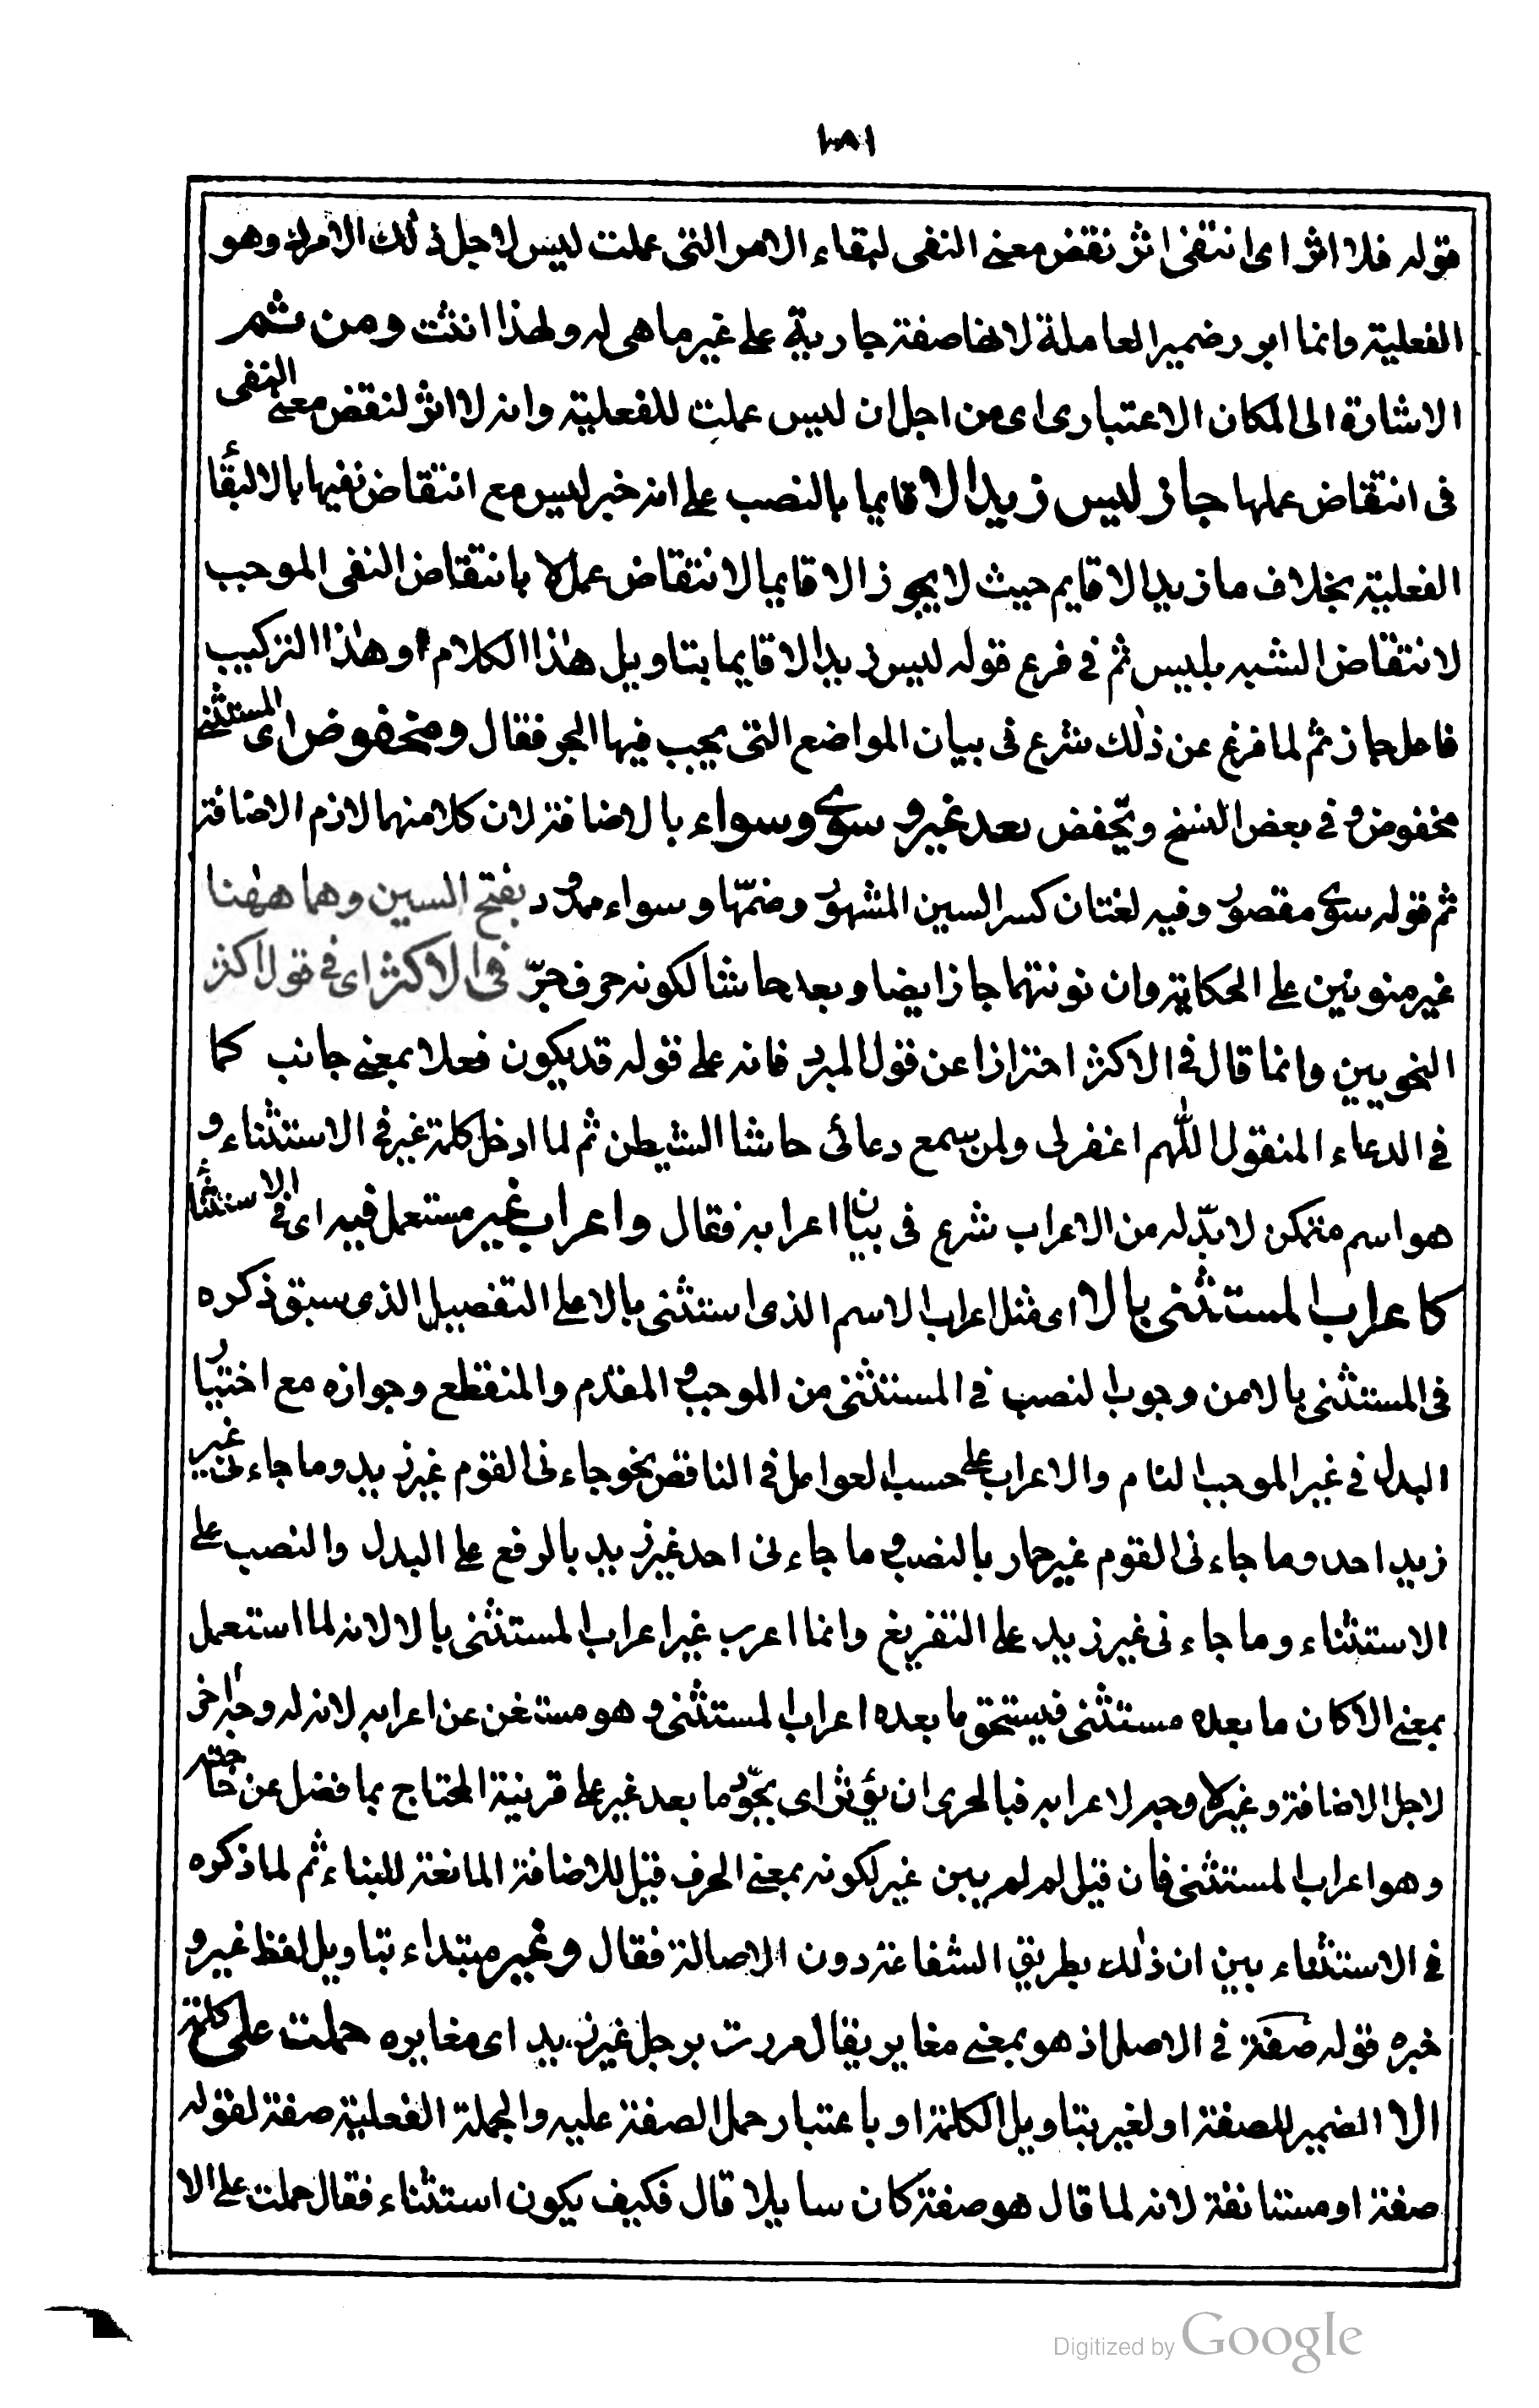 ١٨١
قوله فلا اثر اى انتفى اثر نقض معنى النفى لبقاء الامر التى عملت ليس لاجل ذلك الامر له وهو
الفعلية وانما ابو رضمير العاملة لانها صفة جارية على غير ما هى له ولهذا انثت ومن ثمر
الاشارة الى المكان الاعتبارى اى من اجل ان ليس عملت للفعلية وانه لا اثر لنقض معنى النفى
فى انتقاض عملها جاز ليس زيد الا قايما بالنصب على انه خبر ليس مع انتقاض نفيها بالا لبقا
الفعلية بخلاف ما زيد الا قايم حيث لا يجوز الا قايما لانتقاض عملها بانتقاض النفى الموجب
لانتقاض الشبه بليس ثم فى فرع قوله ليس زيد الا قايما بتاويل هذا الكلام او هذا التركيب
فاعل جاز ثم لما فرغ عن ذلك شرع فى بيان المواضع التى يجب فيها الجر فقال ومخفوض اى المستثنى
مخفوض و فى بعض النسخ ويخفض بعد غير و سوى وسواء بالاضافة لان كلا منهما لازم الاضافة
ثم قوله سوى مقصور وفيه لغتان كسر السين المشهور وضمّها وسواء ممدود بفتح السين وهما ههنا
غير منونين على الحكاية وان نونتهما جاز ايضا وبعد حاشا لكونه حرف جرّ فى الاكثر اى فى قول اكثر
النحويين وانما قال فى الاكثر احترازا عن قول المبرد فانه على قوله قد يكون فعلا بمعنى جانب كما
فى الدعاء المنقول اللّهم اغفر لى ولمن يسمع دعائى حاشا الشيطن ثم لما ادخل كلمة غير فى الاستثناء و
هو اسم متمكن لا بدّ له من الاعراب شرع فى بيان اعرابه فقال واعراب غير مستعمل فيه اى فى الاستثنا
كاعراب المستثنى بالا اى مثل اعراب الاسم الذى استثنى بالا على التفصيل الذى سبق ذكره
فى المستثنى بالا من وجوب النصب فى المستثنى من الموجب و المقدم والمنقطع وجوازه مع اختيار
البدل فى غير الموجب التام والاعراب على حسب العوامل فى الناقص نحو جاءنى القوم غير زيد وما جاءنى غير
زيد احد وما جاءنى القوم غير حمار بالنصب و ما جاءنى احد غير زيد بالرفع على البدل والنصب على
الاستثناء وما جاءنى غير زيد على التفريغ وانما اعرب غير اعراب المستثنى بالا لانه لما استعمل
بمعنى الا كان ما بعده مستثنى فيستحق ما بعده اعراب المستثنى و هو مستغن عن اعرابه لانه له وجه اخر
لاجل الاضافة وغير لا وجه لاعرابه فبالحرى ان يؤثر اى يجوّد ما بعد غير على قرينة المحتاج بما فضل عن حاجته
وهو اعراب المستثنى فان قيل لم لم يبن غير لكونه بمعنى الحرف قيل للاضافة المانعة للبناء ثم لما ذكره
فى الاستثناء بين ان ذلك بطريق الشفاعة دون الاصالة فقال وغير مبتداء بتاويل لفظ غير و
خبره قوله صفة فى الاصل اذ هو بمعنى مغاير يقال مررت برجل غير زيد اى مغايره حملت على كلمة
الا الضمير للصفة او لغير بتاويل الكلمة او باعتبار حمل الصفة عليه والجملة الفعلية صفة لقوله
صفة او مستانفة لانه لما قال هو صفة كان سايلا قال فكيف يكون استثناء فقال حملت على الا
Digitized by Google